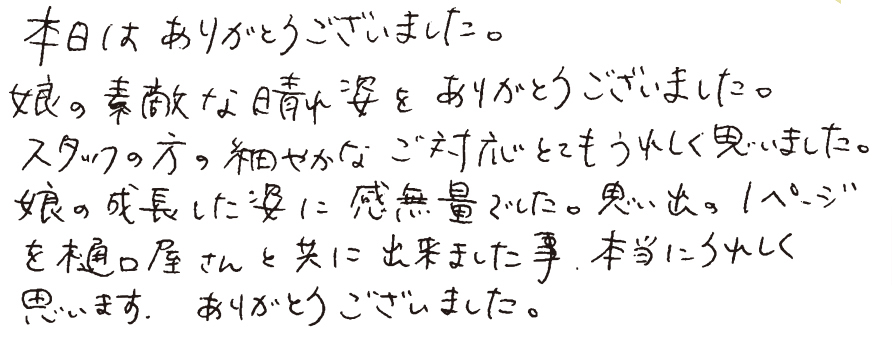 本日は ありがとうございました。
娘の素敵な晴れ姿を ありがとうございました。
スタッフの方の細やかな ご対応とてもうれしく思いました。
娘の成長した姿に 感無量でした。思い出の1ページ
を樋口屋さんと共に出来ました事.本当にうれしく
思います. ありがとうございました。